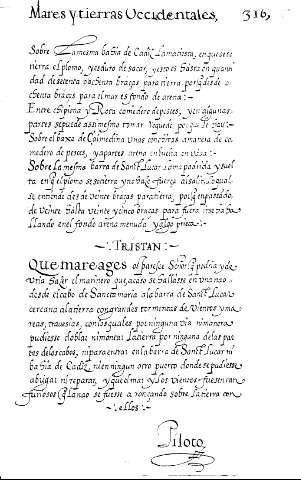 Mares y tierras Occidentales, 316,
Sobre la mesma bahia de Cadiz Lamacresta, en que se en
tierra el plomo, y es duro de sacar, y esto es hasta en quanti
dad de setenta ochenta braças para tierra, porq̃ desde o
chenta braças para el mar es fondo de arena:
Entre chipiona y Rota comedero de peçes, y en algunas
partes se puede assi mesmo tomar
Sobre el baxo de Çalmedina unas conchitas a manera de co
medero de peçes, y a partes arena embuelta en vasa:
Sobre la mesma barra de Sanct Lucar Lama podrida y suel
ta en q̃ el plomo se entierra y no haze fuerça al salir, lo qual
se entiende de de veinte braças para tierra, porq̃ en passado
de veinte hasta veinte y cinco braças para fuera se va ha
llando en el fondo arena menuda y algo prieta
— : TRISTAN : —
QUE mareages os parescé Señor q̃ podria y de
vria hazer el marinero que acaso se hallasse en una nao
desde el cabo de Sancta maria a la barra de Sanct Lucar
cercana a la tierra con grandes tormentas de vientos y ma
res, travesias, con los quales por ninguna via ni manera
pudiesse doblar ni montar la tierra por ninguna de las par
tes de los cabos, ni para entrar en la barra de Sanct Lucar ni ba
hia de Cadiz, ni en ningun otro puerto donde se pudiesse
abrigar ni reparar, y que el mar y los vientos fuessen tan
furiosos q̃ la nao se fuesse a ronçando sobre la tierra con
— : ellos : —
Piloto